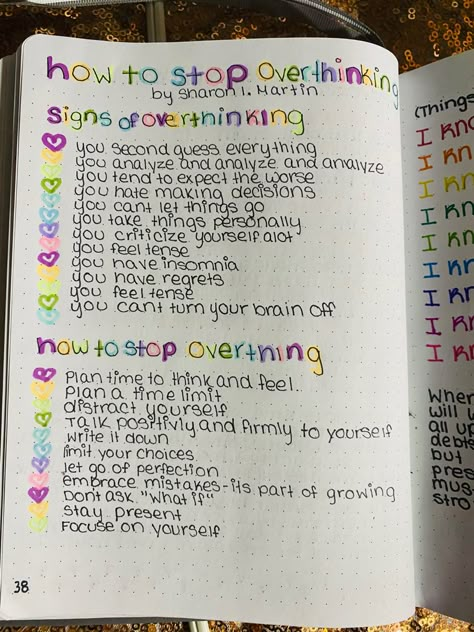 how to stop overthinking
by sharon l. Martin
signs of overthinking
you second guess everything
you analyze and analyze and analyze
you tend to expect the worse
you hate making decisions
you cant let things go
you take things personally
you criticize yourself alot
you feel tense
you have insomnia
you have regrets
you feel tense
you cant turn your brain off
how to stop overthning
Plan time to think and feel.
Plan a time limit
distract yourself
Talk positivly and firmly to yourself
write it down
limit your choices
let go of perfection
embrace mistakes-its part of growing
Dont ask "what if"
stay present
Focus on yourself
38
(Things
I kno
I kn
I kn
I kn
I kn
I kn
I kn
I kn
I kn
When
will
all up
debt
but
pres
mus
stro